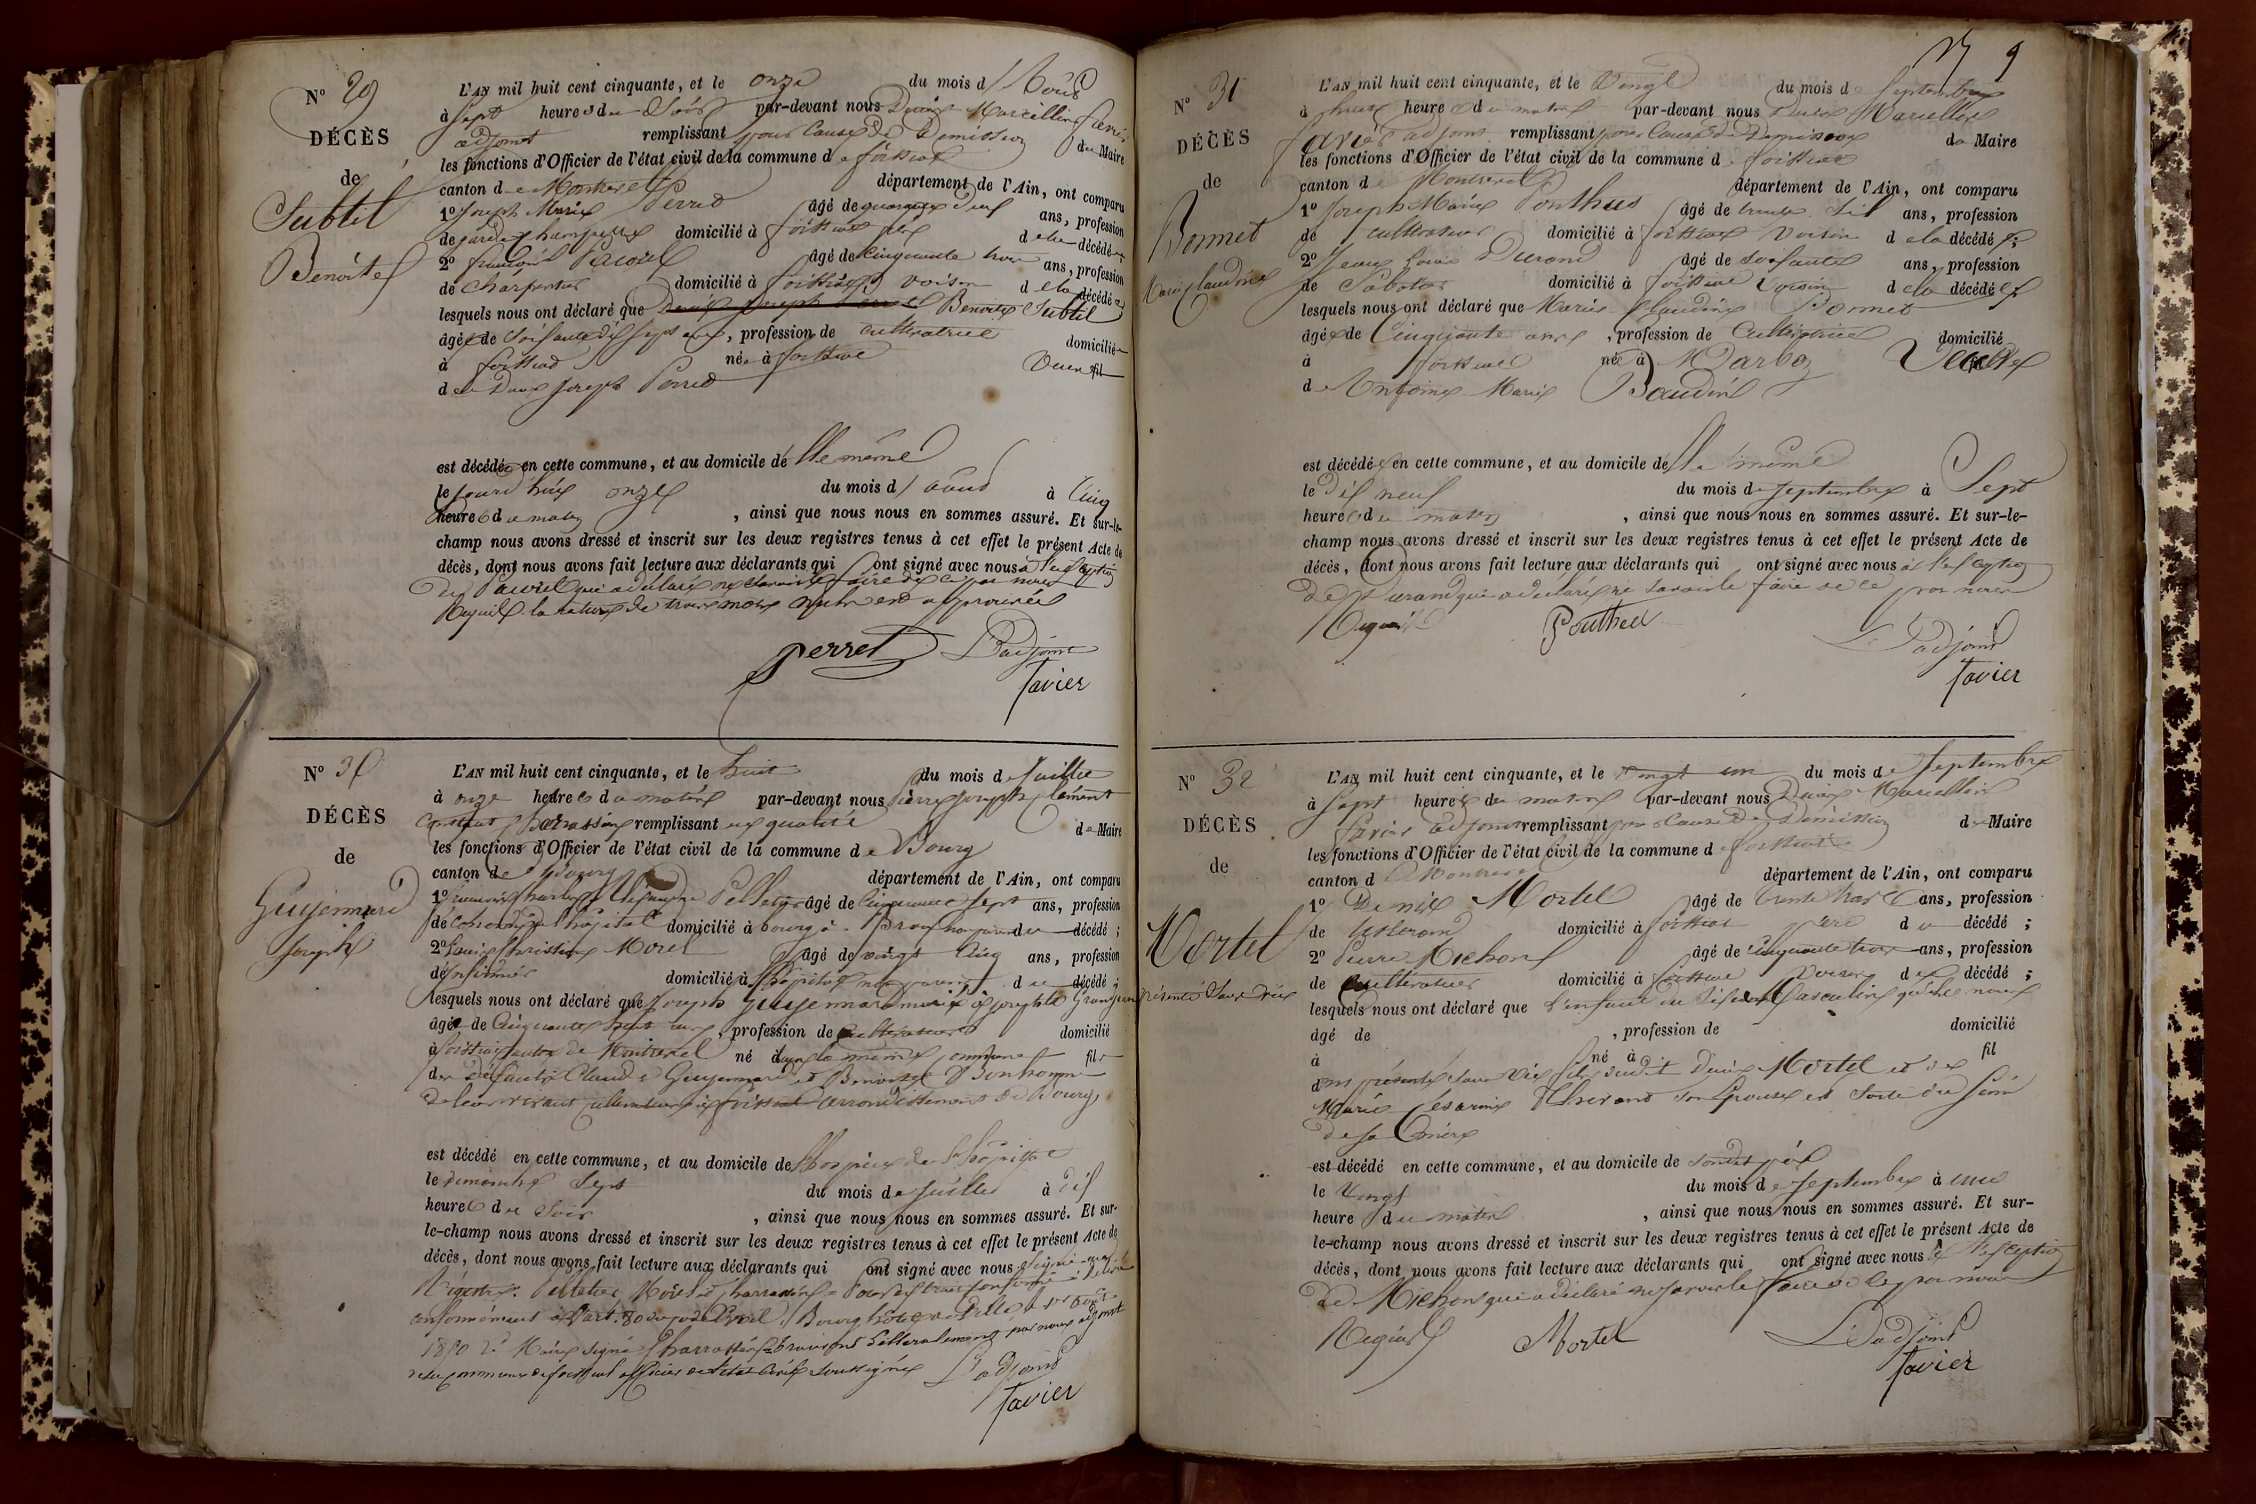 N° 29
DÉCÈS
de
Subtil
Benoite
L'AN mil huit cent cinquante, et le onze du mois d'Aoûst
à Sept heures du Soir par-devant nous Denis Marcellin favier
adjoint remplissant pour Cause de Demission de Maire
les fonctions d'Officier de l'état civil de la commune de foissiat
canton de Montrevel département de l'Ain, ont comparu
1° Joseph Marie Perret âgé de quarante neuf ans, profession
de garde champetre domicilié à foissiat fils de la décédée
2° françois Pauvil âgé de cinquante trois ans, profession
de charpentier domicilié à foissiat voisin de la décédée;
lesquels nous ont déclaré que Benoite Subtil
âgée de Soixante dix sept ans, profession de cultivatrice domiciliée
à foissiat née à foissiat Veuve
de Joseph Perret
est décédée en cette commune, et au domicile d'elle même
le jourd'hui onze du mois d'aoust à Cinq
heures du matin, ainsi que nous nous en sommes assuré. Et sur-le-
champ nous avons dressé et inscrit sur les deux registres tenus à cet effet le présent Acte de
décès, dont nous avons fait lecture aux déclarants qui ont signé avec nous à l'exception
de Pauvil qui a déclaré ne savoir le faire de ce par nous
Requis la rature de trois mots nuls est approuvée
perret L'adjoint
favier
N° 30
DÉCÈS
de
Guyennard
Joseph
L'AN mil huit cent cinquante, et le huit du mois de Juillet
à onze heures du matin par-devant nous Pierre Joseph Clément
Constant remplissant en qualité de Maire
les fonctions d'Officier de l'état civil de la commune de Bourg
canton de Bourg département de l'Ain, ont comparu
1° Charles Alexandre Pelletier âgé de Cinquante Sept ans, profession
de l'hôpital domicilié à bourg non parent du décédé;
2° Louis Christin Morel âgé de vingt Cinq ans, profession
d'infirmier domicilié à l'hôpital non parent du décédé;
lesquels nous ont déclaré que Joseph Guyennard marié à Josephte Grangeon
âgé de Cinquante huit ans, profession de cultivateur domicilié
à foissiat canton de Montrevel né dans la même commune fils
de défunts Claude Guyennard et Benoite Bonhomme
de leur vivant cultivateurs à foissiat arrondissement de Bourg
est décédé en cette commune, et au domicile de l'hospice de l'hôpital
le dimanche Sept du mois de Juillet à dix
heures du Soir, ainsi que nous nous en sommes assuré. Et sur-
le-champ nous avons dressé et inscrit sur les deux registres tenus à cet effet le présent Acte de
décès, dont nous avons fait lecture aux déclarants qui ont signé avec nous
Registre. Pelletier, Morel
conformément à l'art. 80 du Code Civil. Bourg hôtel de Ville le 1er Août
1850 Le Maire signé
L'adjoint
favier
9
N° 31
DÉCÈS
de
Bonnet
Marie Claudine
L'AN mil huit cent cinquante, et le Vingt du mois de Septembre
à heures du matin par-devant nous Denis Marcellin
favier adjoint remplissant pour Cause de Demission de Maire
les fonctions d'Officier de l'état civil de la commune de foissiat
canton de Montrevel département de l'Ain, ont comparu
1° Joseph Marie Ponthus âgé de trente six ans, profession
de cultivateur domicilié à foissiat Voisin de la décédée;
2° Jean Louis Durand âgé de soixante ans, profession
de Sabotier domicilié à foissiat Voisin de la décédée;
lesquels nous ont déclaré que Marie Claudine Bonnet
âgée de Cinquante ans, profession de Cultivatrice domicilié
à foissiat né à Marboz Veuve
de Antoine Marie Baudin
est décédée en cette commune, et au domicile d'elle même
le dix neuf du mois de septembre à Sept
heures du matin, ainsi que nous nous en sommes assuré. Et sur-le-
champ nous avons dressé et inscrit sur les deux registres tenus à cet effet le présent Acte de
décès, dont nous avons fait lecture aux déclarants qui ont signé avec nous à l'exception
de Durand qui a déclaré ne savoir le faire de ce par nous
Requis Ponthus L'adjoint
favier
N° 32
DÉCÈS
de
Mortel
présenté Sans Vie
L'AN mil huit cent cinquante, et le vingt un du mois de Septembre
à Sept heures du matin par-devant nous Denis Marcellin
favier adjoint remplissant pour Cause De Démission de Maire
les fonctions d'Officier de l'état civil de la commune de foissiat
canton de Montrevel département de l'Ain, ont comparu
1° Denis Mortel âgé de trente trois ans, profession
de tisserand domicilié à foissiat père du décédé;
2° Pierre Michon âgé de cinquante trois ans, profession
de Cultivateur domicilié à foissiat Voisin du décédé;
lesquels nous ont déclaré que l'enfant du Sexe Masculin qu'ils nous
âgé de , profession de domicilié
à né à fil
d ont présenté Sans Vie fils dudit Denis Mortel et de
Marie Cesarine son Epouse est sorti du Sein
de sa mère
est décédé en cette commune, et au domicile de sondit père
le Vingt du mois de septembre à une
heure du matin, ainsi que nous nous en sommes assuré. Et sur-
le-champ nous avons dressé et inscrit sur les deux registres tenus à cet effet le présent Acte de
décès, dont nous avons fait lecture aux déclarants qui ont signé avec nous à l'exception
de Michon qui a déclaré ne savoir le faire de ce par nous
Requis Mortel L'adjoint
favier